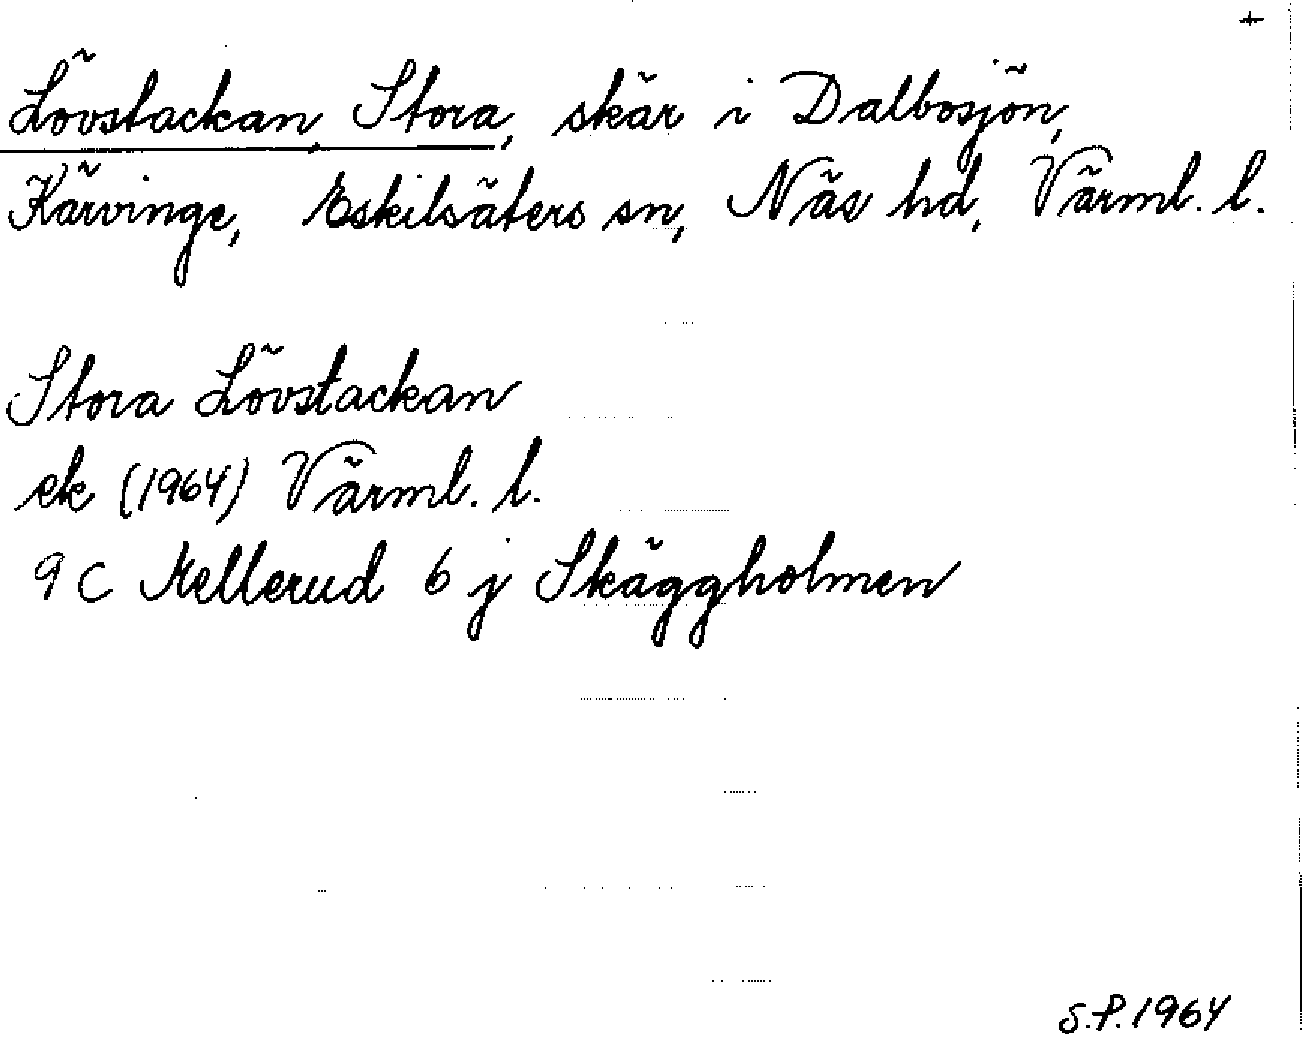 +
Lövstackan, Stora, skär i Dalbosjön,
Kärvinge, Eskilsäters sn, Näs hd, Värml. l.
Stora Lövstackan
ek (1964) Värml. l.
9 C Mellerud 6 j Skäggholmen
S.P. 1964